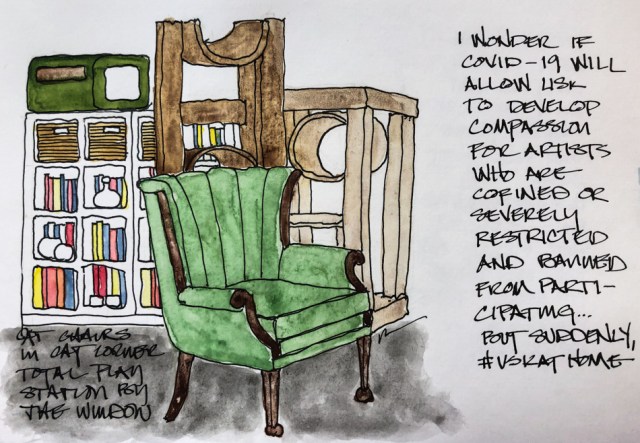 I WONDER IF
COVID-19 WILL
ALLOW USK
TO DEVELOP
COMPASSION
FOR ARTISTS
WHO ARE
COFINED OR
SEVERELY
RESTRICTED
AND BANNED
FROM PARTI-
CIPATING...
BUT SUDDENLY,
#USKATHOME
CAT CHAIRS
IN CAT CORNER
TOTAL PLAY
STATION BY
THE WINDOW